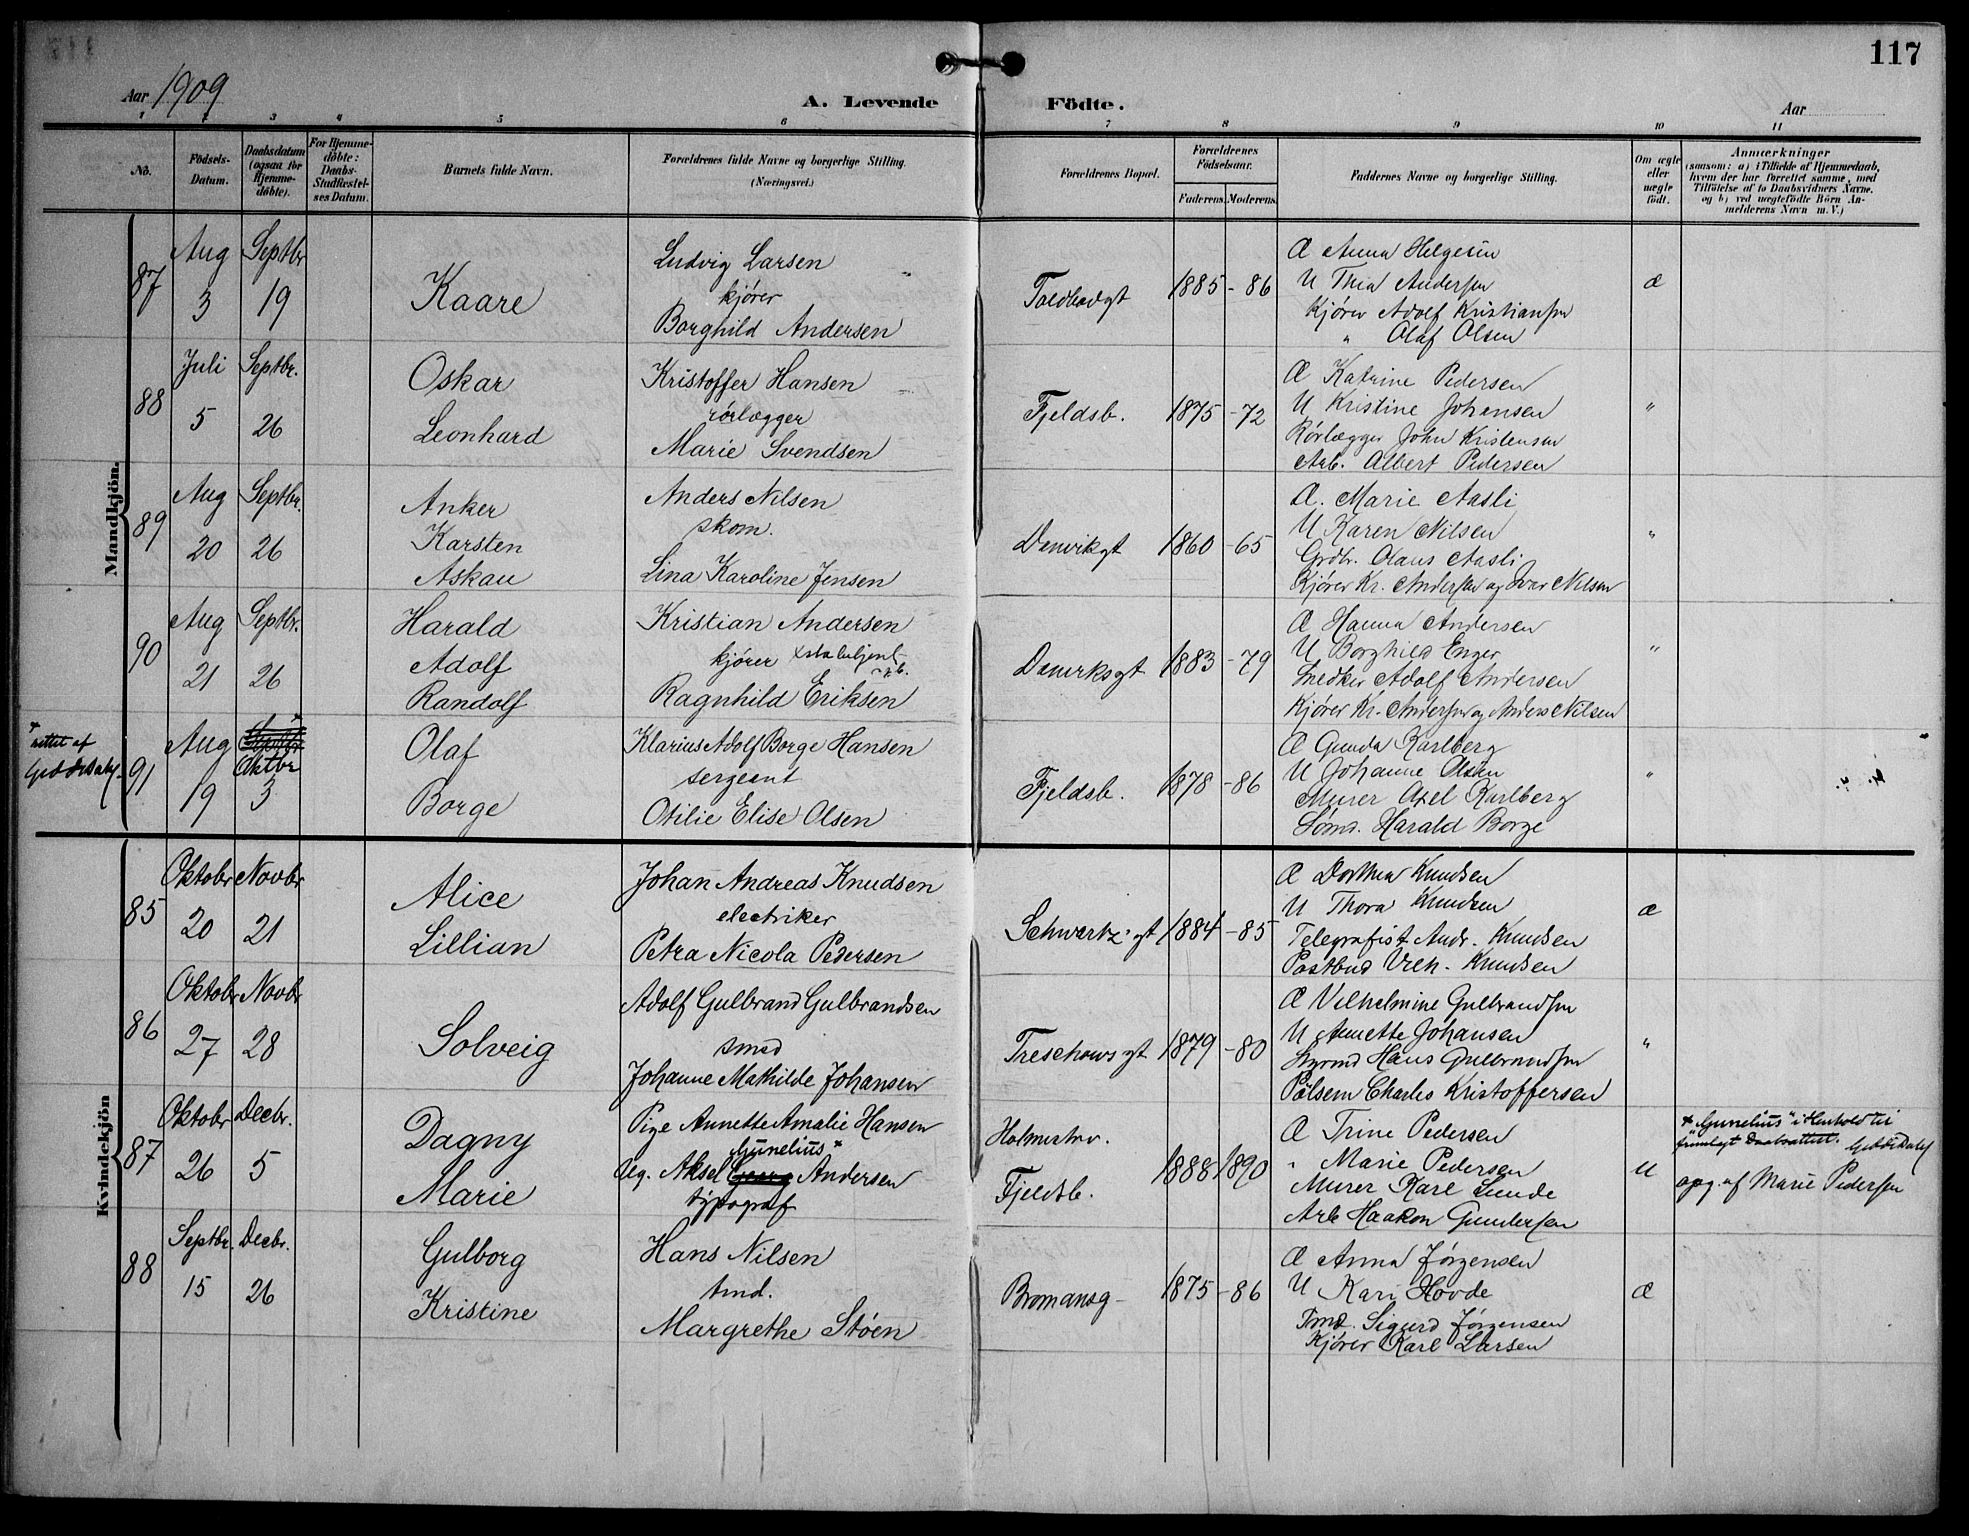 117
Aar 1909
A. Levende Födte.
Aar
1 2 3 4 5 6 7 8 9 10 11
No.
Födsels-Datum.
Daabsdatum (ogsaa for Hjemmedöbte).
For Hjemmedöbte: Daabs-Stadfæstelses Datum.
Barnets fulde Navn.
Forældrenes fulde Navne og borgerlige Stilling. (Næringsvei.)
Forældrenes Bopæl.
Forældrenes Födselsaar.
Faderens. Moderens.
Faddernes Navne og borgerlige Stilling.
Om ægte eller uægte født.
Anmærkninger
(saasom: a) i Tilfælde af Hjemmedaab, hvem der har forrettet samme, med Tilföielse af to Daabsvidners Navne, og b) ved uægtefödte Börn Anmelderens Navn m. V.)
Mandkjön.
87
Aug 3
Septbr 19
Kaare
Ludvig Larsen
kjører
Borghild Andersen
Toldbodgt
1885 - 86
Æ Anna Helgesen
U Thea Andersen
Kjører Adolf Kristiansen
" Olaf Olsen
æ
88
Juli 5
Septbr. 26
Oskar
Leonhard
Kristoffer Hansen
rørlægger
Marie Svendsen
Fjeldsb.
1875 - 72
Æ Katrine Pedersen
U Kristine Johansen
Rørlægger John Kristensen
Arb. Albert Pedersen
"
89
Aug 20
Septbr. 26
Anker
Karsten
Askau
Anders Nilsen
skom.
Lina Karoline Jensen
Danvikgt
1860 - 65
Æ. Marie Aasli
U Karen Nilsen
Grdbr. Olaus Aasli
Kjører Kr. Andersen og Ivar Nilsen
"
90
Aug 21
Septbr. 26
Harald
Adolf
Randolf
Kristian Andersen
kjører
Ragnhild Eriksen
Danviksgt
1883 - 79
Æ Hanna Andersen
U Borghild Enger
Snedker Adolf Andersen
Kjører Kr. Andersen og Anders Nilsen
"
× rettet af
91
Aug 19
Septbr ×
Oktbr 3
Olaf
Borge
Klarius Adolf Borge Hansen
sergeant
Otilie Elise Olsen
Fjeldsb.
1878 - 86
Æ Gunda Karlberg
U Johanne Olsen
Murer Axel Karlberg
Sømd. Harald Borge
"
Kvindekjön
85
Oktobr 20
Novbr 21
Alice
Lillian
Johan Andreas Knudsen
electriker
Petra Nicola Pedersen
Schwartz' gt
1884 - 85
Æ Dorthea Knudsen
U Thora Knudsen
Telegrafist Andr. Knudsen
Postbud Vilh. Knudsen
æ
86
Oktobr 27
Novbr 28
Solveig
Adolf Gulbrand Gulbrandsen
smed
Johanne Mathilde Johansen
Treschows gt
1879 - 80
Æ Vilhelmine Gulbrandsen
U Annette Johansen
Hans Gulbrandsen
Pölsem Charles Kristoffersen
"
87
Oktobr 26
Decbr. 5
Dagny
Marie
Pige Annette Amalie Hansen
Gunelius ×
Ug. Aksel Georg Andersen
typograf
Holmestrv.
Fjeldsb.
1888 1890
Æ Trine Pedersen
" Marie Pedersen
Murer Karl Lunde
Arb Haakon Gundersen
U
× "Gunelius" i Henhold til
fremlagt Daabsattest.
opg. af Marie Pedersen
88
Septbr. 15
Decbr. 26
Gulborg
Kristine
Hans Nilsen
tmd.
Margrethe Støen
Bromansg
1875 - 86
Æ Anna Jørgensen
U Kari Hovde
Tmd. Sigurd Jørgensen
Kjører Karl Larsen
æ